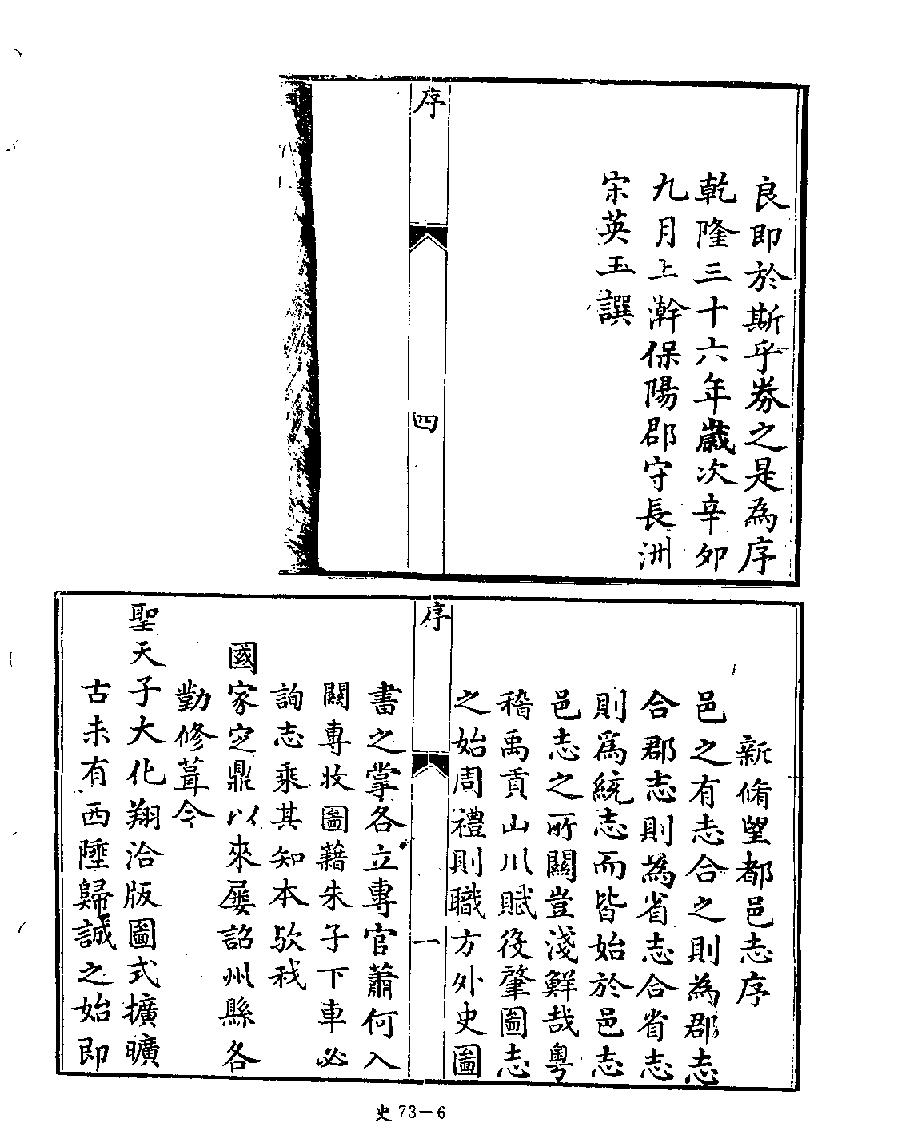 良即於斯乎券之是為序
乾隆三十六年歲次辛卯
九月上澣保陽郡守長洲
宋英玉譔
序
四
新脩望都邑志序
邑之有志合之則為郡志
合郡志則為省志合省志
則爲統志而皆始於邑志
邑志之所關豈淺鮮哉粤
稽禹貢山川賦後肇圖志
之始周禮則職方外史圖
序
一
書之掌各立專官蕭何入
關專收圖籍朱子下車必
詢志乘其知本欤我
國家定鼎以來屡詔州縣各
勤修葺今
聖天子大化翔洽版圖式擴曠
古未有西陲歸誠之始即
史 73－6